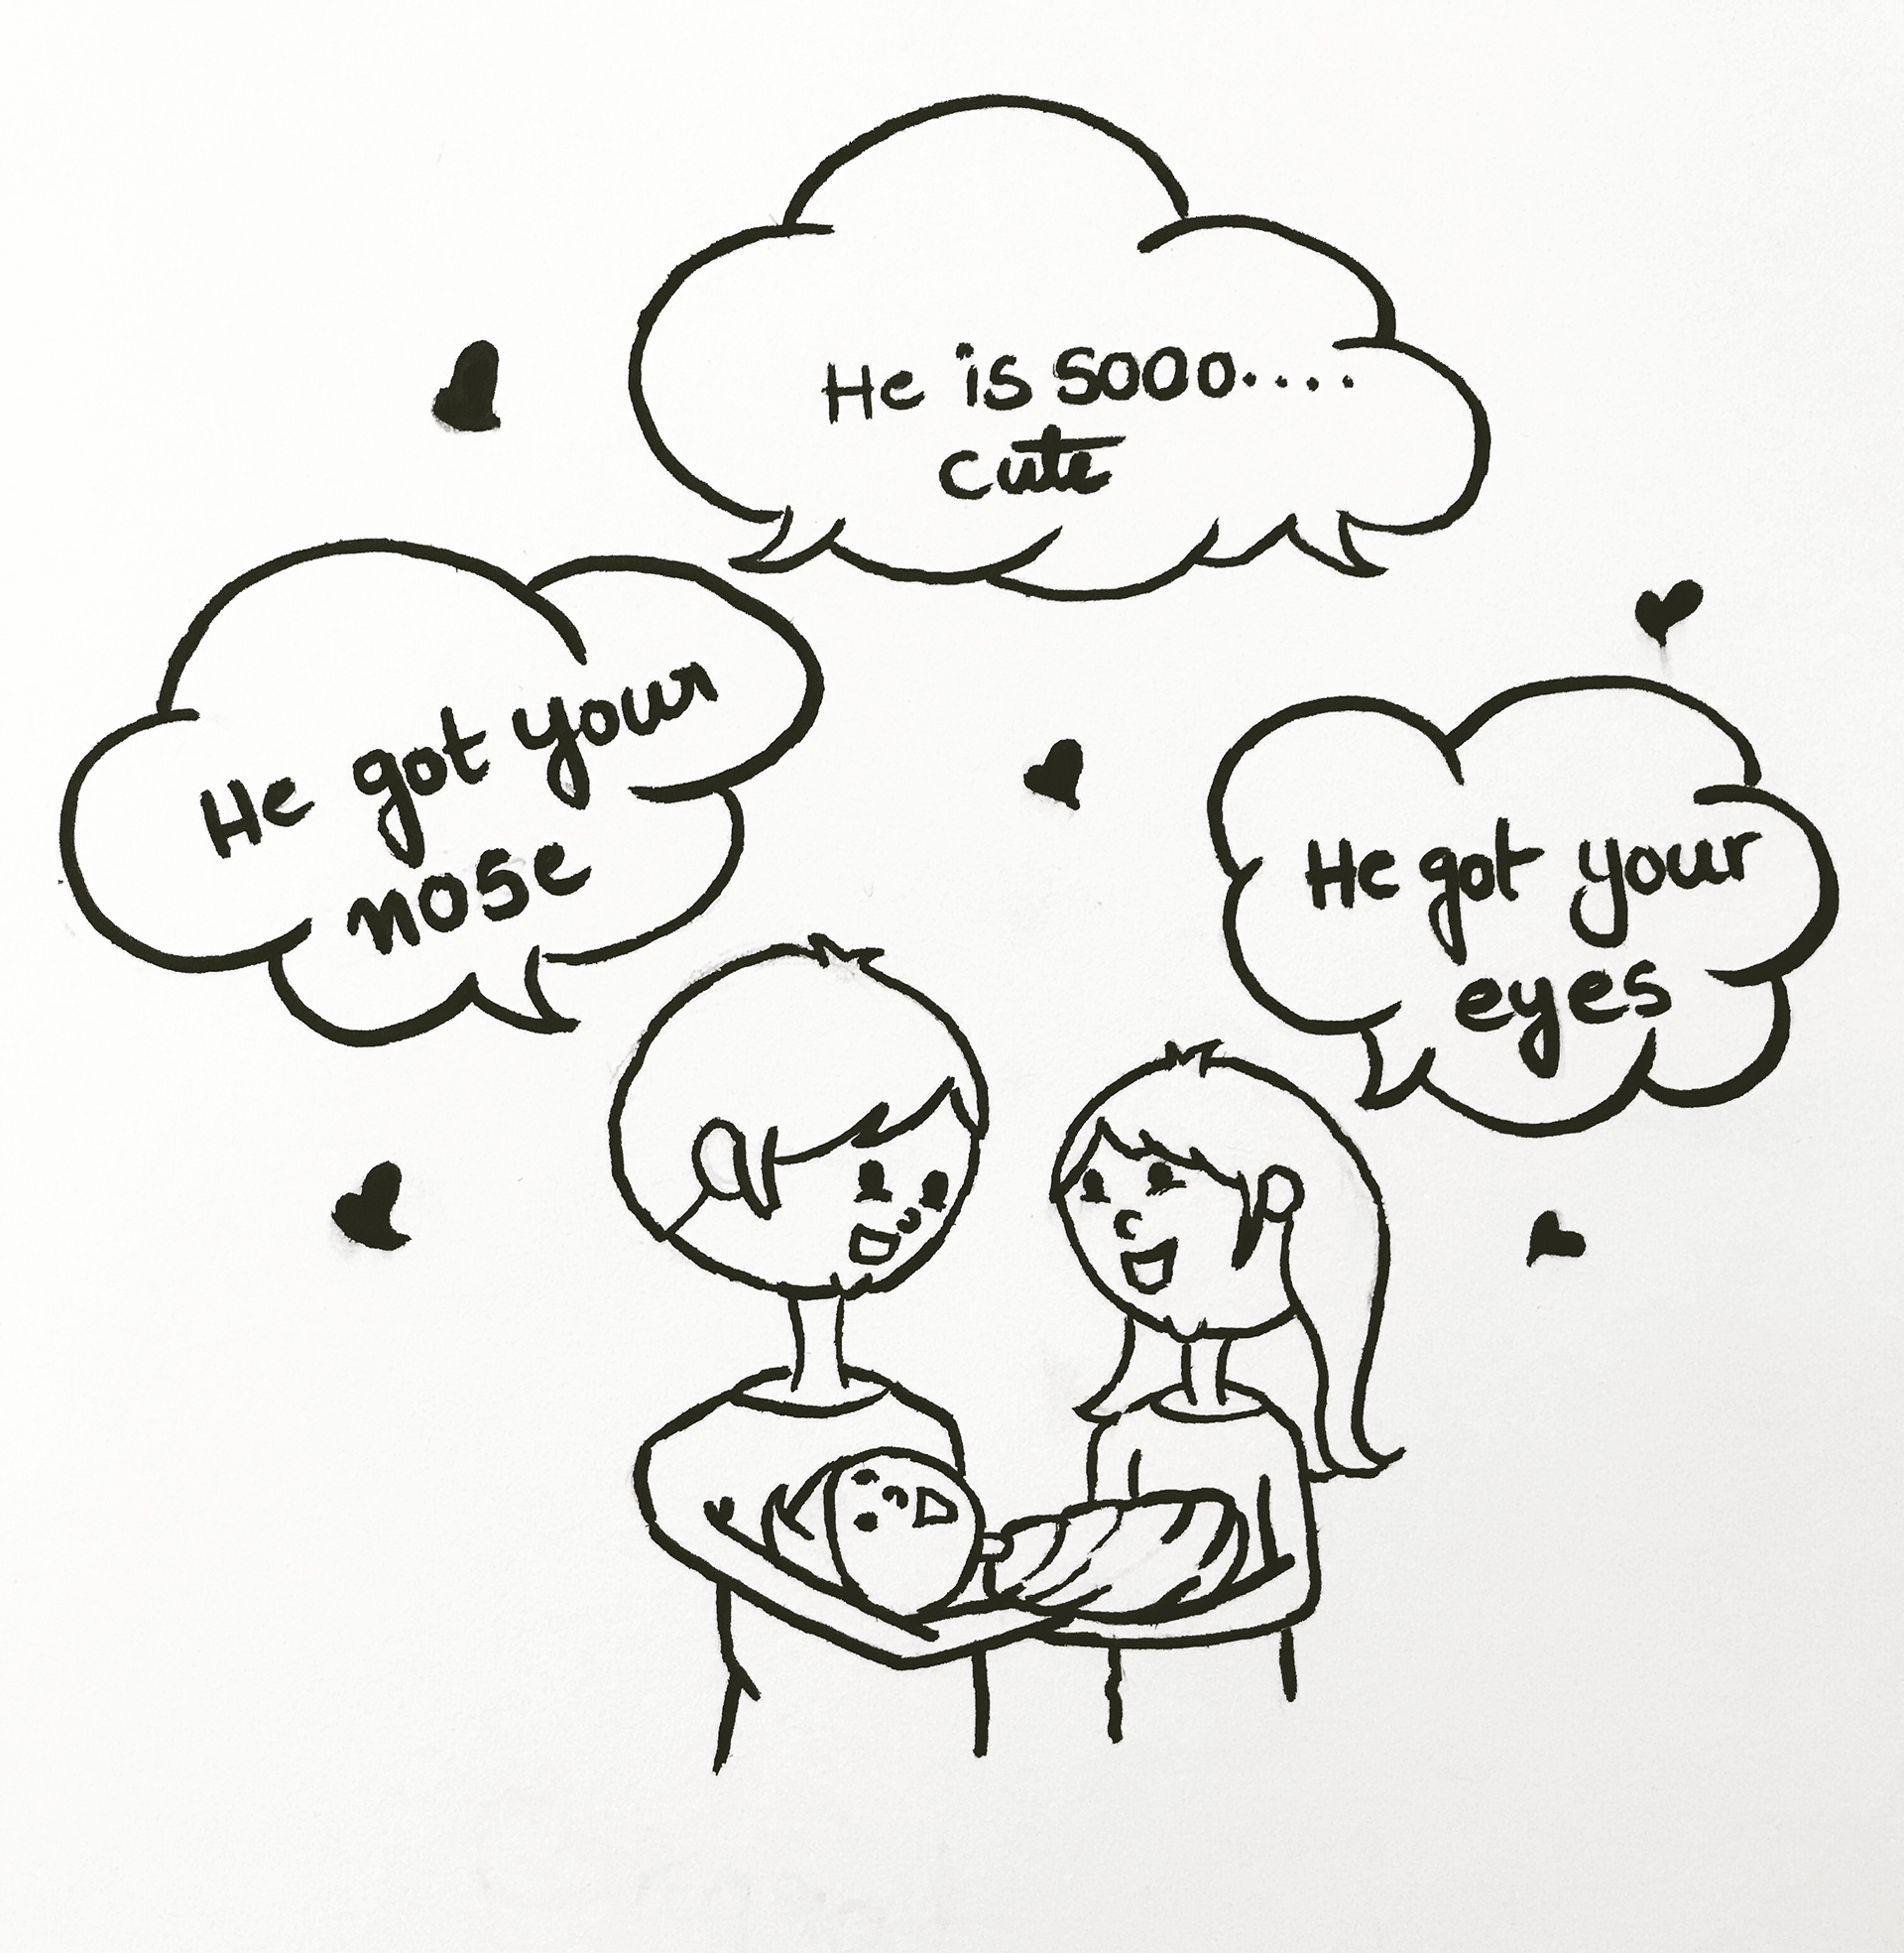 He is sooo....
cute
He got your
nose
He got your
eyes